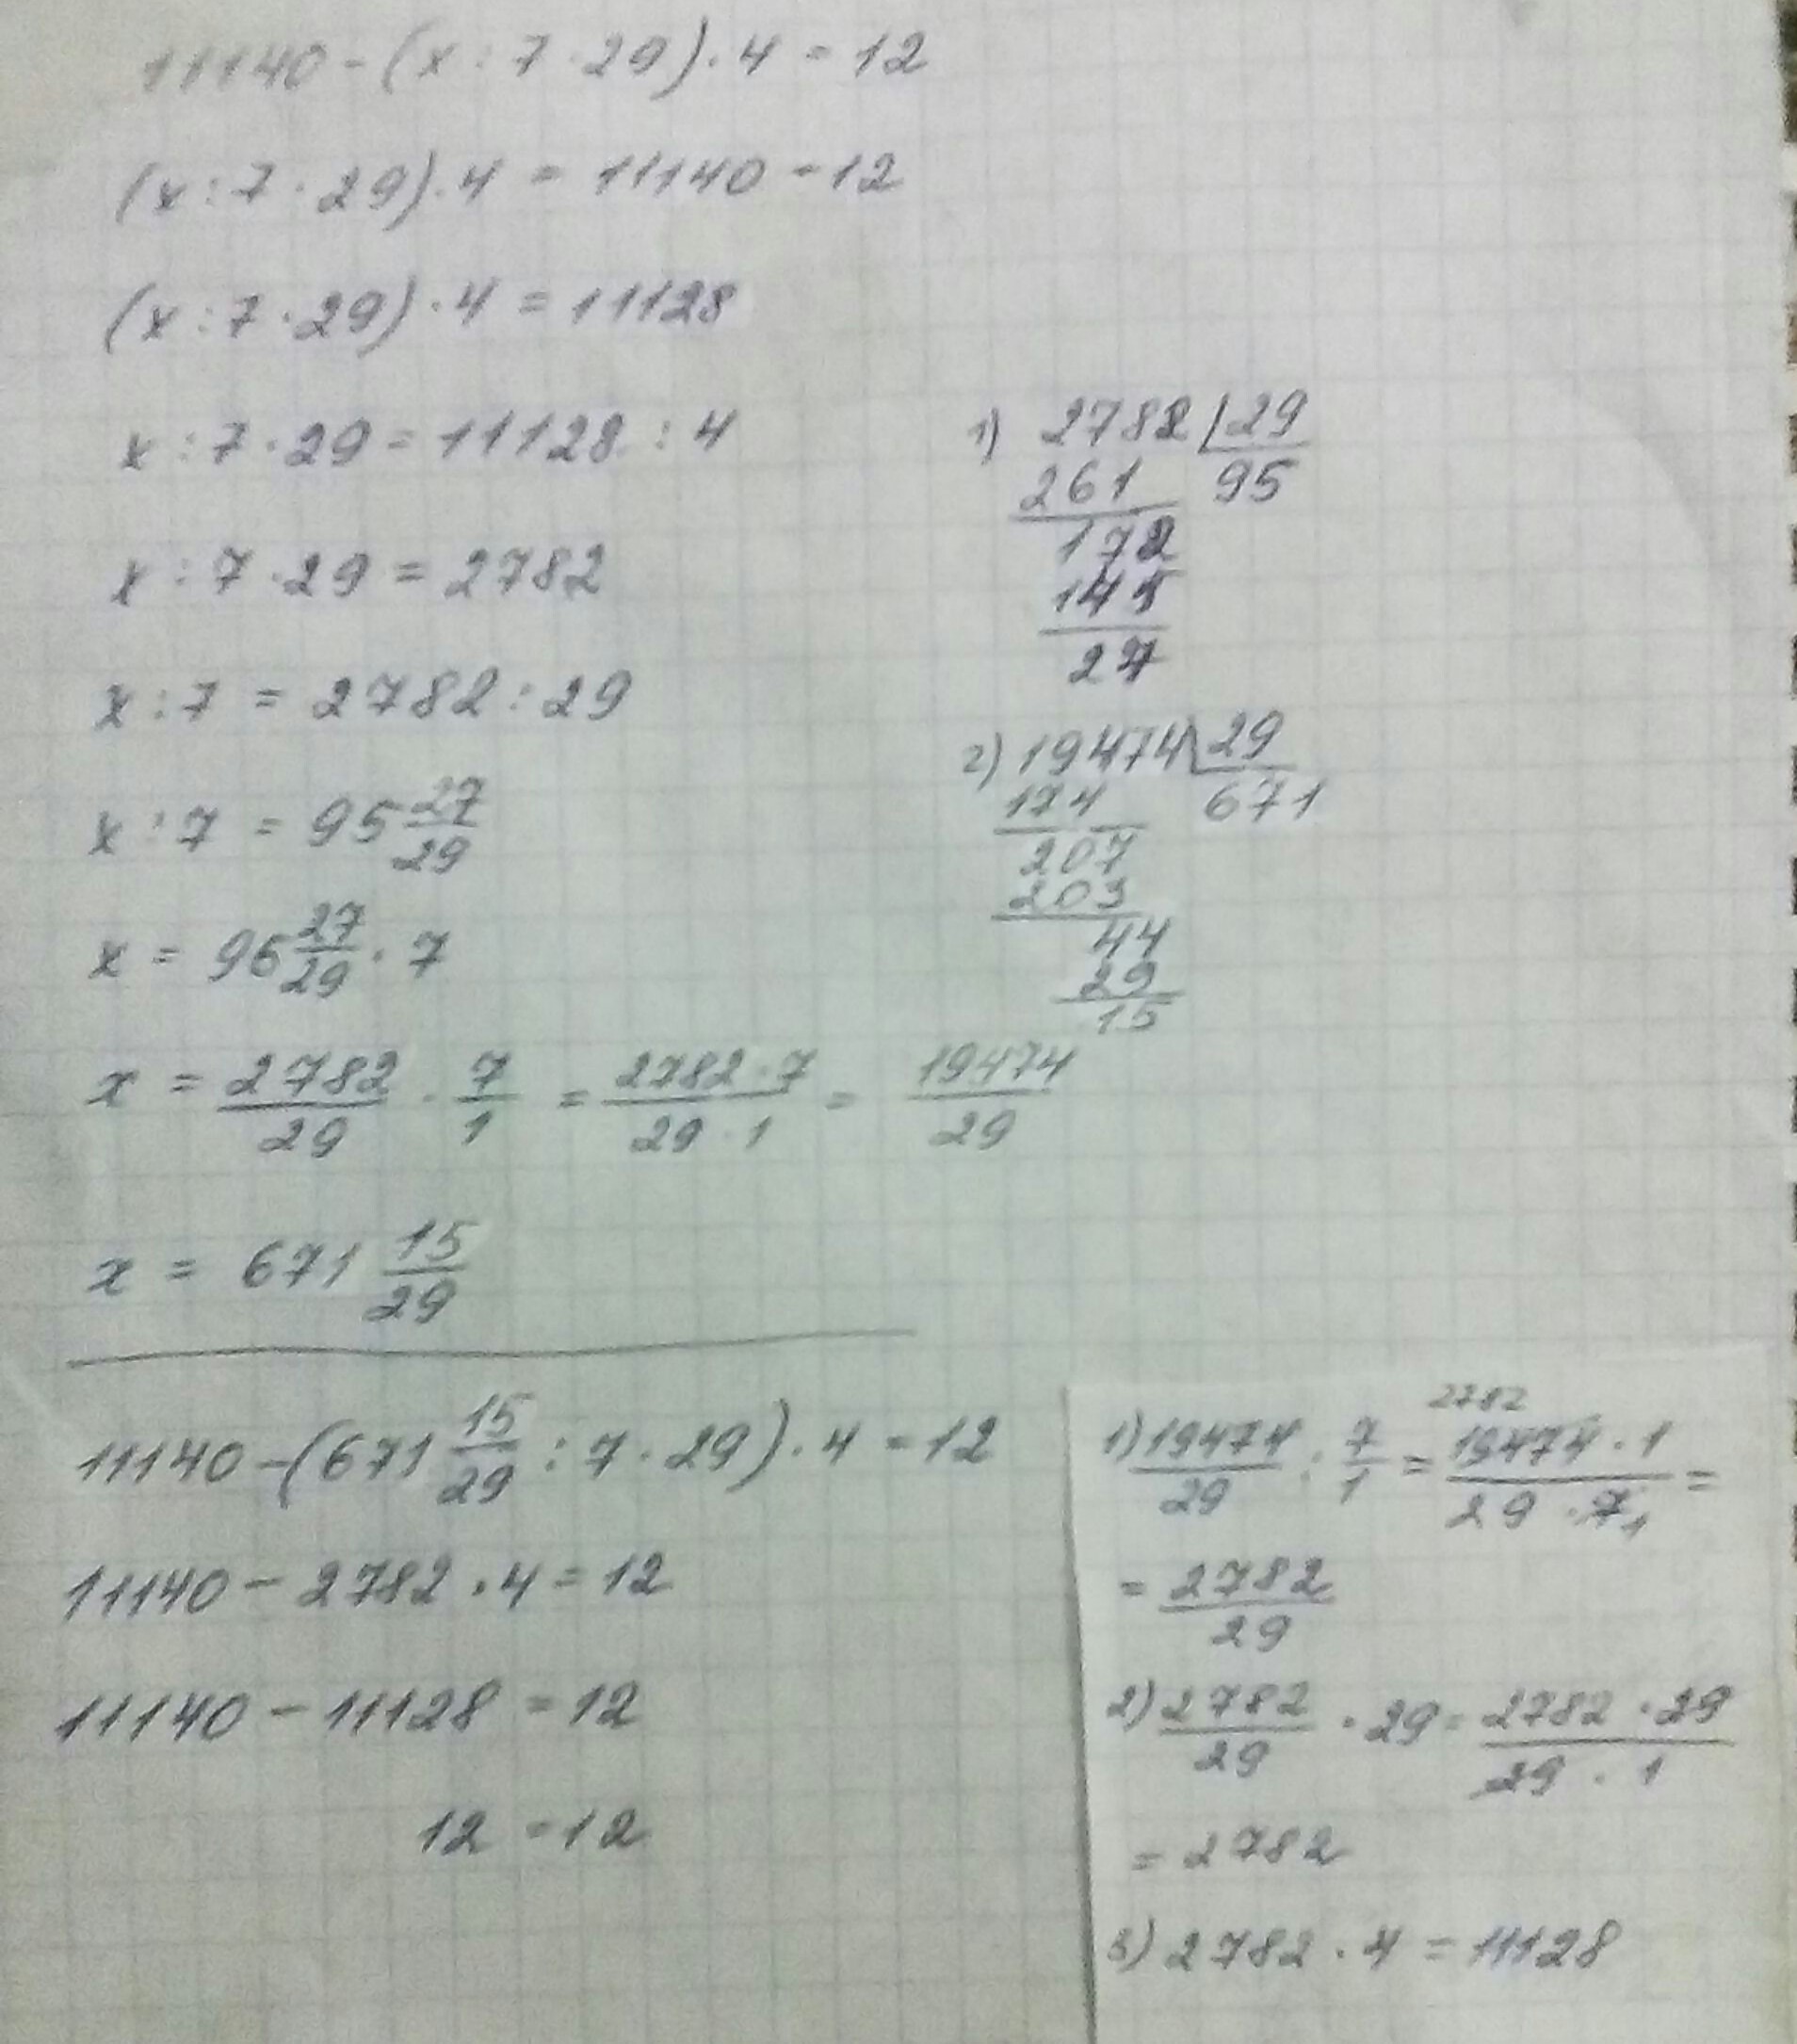 11140 - (x : 7 · 29) · 4 = 12
(x : 7 · 29) · 4 = 11140 - 12
(x : 7 · 29) · 4 = 11128
x : 7 · 29 = 11128 : 4
x : 7 · 29 = 2782
x : 7 = 2782 : 29
x : 7 = 95 27/29
x = 95 27/29 · 7
x = 2782/29 · 7/1 = 2782 · 7/29 · 1 = 19474/29
x = 671 15/29
1) 2782 | 29
261 95
172
145
27
2) 19474 | 29
174 671
207
203
44
29
15
11140 - (671 15/29 : 7 · 29) · 4 = 12
11140 - 2782 · 4 = 12
11140 - 11128 = 12
12 = 12
2782
1) 19474/29 : 7/1 = 19474 · 1/29 · 7 1 =
= 2782/29
2) 2782/29 · 29 = 2782 · 29/29 · 1
= 2782
3) 2782 · 4 = 11128